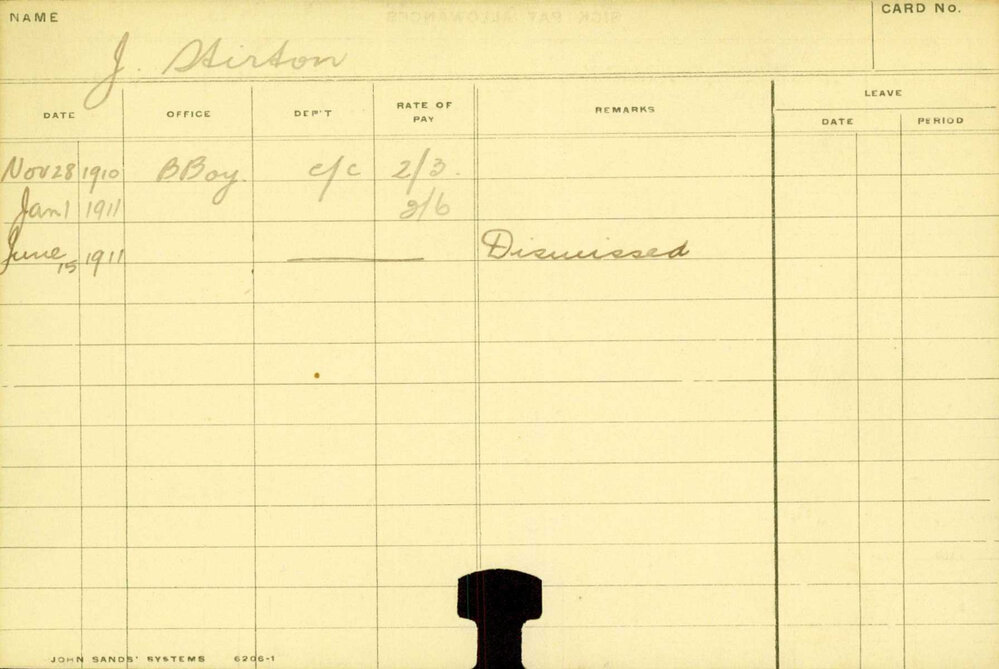 NAME
CARD No.
J. Stirton
DATE OFFICE DEP'T RATE OF PAY REMARKS LEAVE
DATE PERIOD
Nov 28 1910 B Boy c/c 2/3.
Jan 1 1911 2/6
June 15 1911 Dismissed
JOHN SANDS' SYSTEMS 6206-1